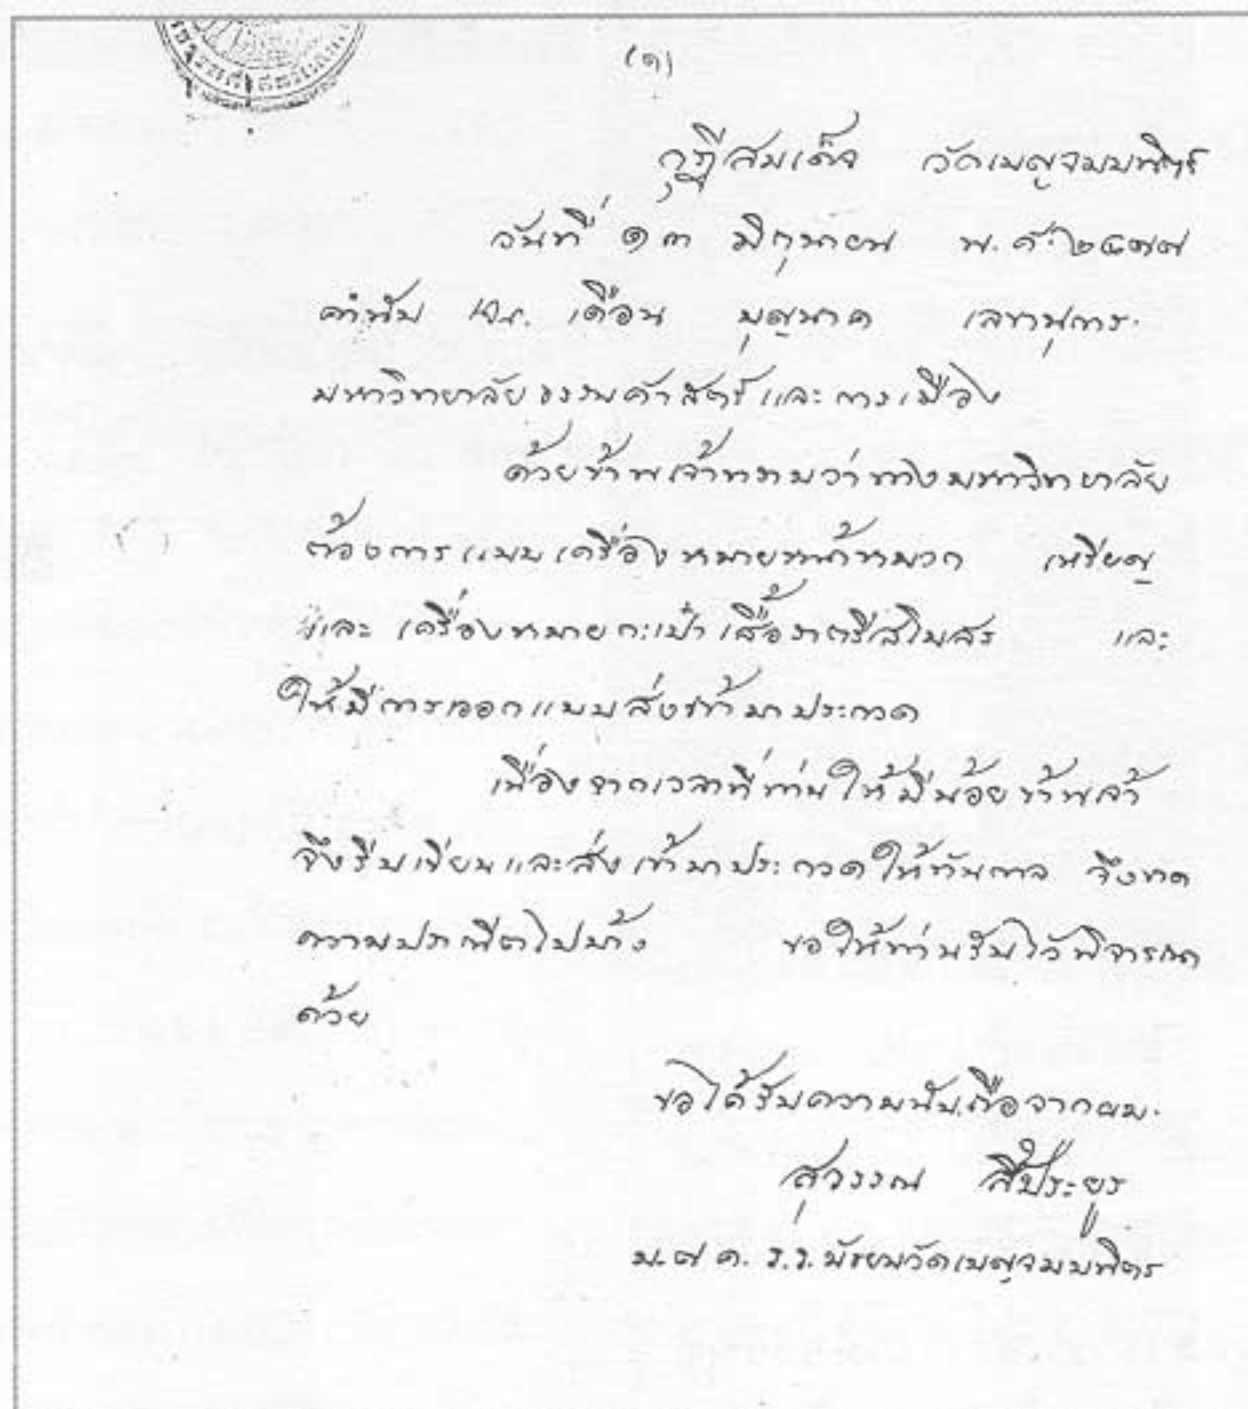 (๑)
กุฎีสมเด็จ วัดเบญจมบพิตร์
วันที่ ๑๓ มิถุนายน พ.ศ. ๒๔๗๗
คำนับ ดร. เดือน บุญนาค เลขานุการ
มหาวิทยาลัยธรรมศาสตร์และการเมือง
ด้วยข้าพเจ้าทราบว่าทางมหาวิทยาลัย
ต้องการแบบเครื่องหมายหน้าหมวก เหรียญ
และ เครื่องหมายกะเป๋าเสื้อราตรีสโมสร และ
ให้มีการออกแบบส่งเข้ามาประกวด
เนื่องจากเวลาที่ท่านให้มีน้อย ข้าพเจ้า
จึงรีบเขียนและส่งเข้ามาประกวดให้ทันกาล จึงขาด
ความปราณีตไปบ้าง ขอให้ท่านรับไว้พิจารณา
ด้วย
ขอได้รับความนับถือจากผม.
สุวรรณ สีประยูร
ม. ๗ ค. ร.ร. มัธยมวัดเบญจมบพิตร